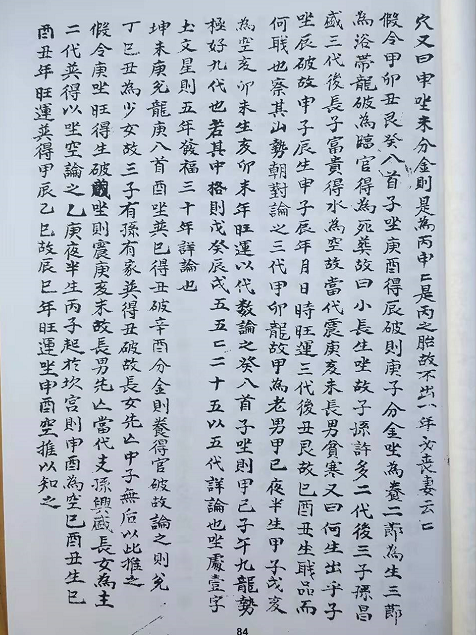 穴又曰申坐未分金則是為丙申二是丙之胎故不出八年必喪妻云云
假令甲卯丑艮癸八首子坐庚酉得辰破則庚子分金坐為養二節為生三節
為浴帶龍破為臨官得為死葬故曰小長生坐故子孫許多二代後三子孫昌
盛三代後長子富貴得水為空故當代震庚亥未長男貧寒又曰何生出乎子
坐辰破故申子辰生申子辰年月日時旺運三代後丑艮故巳酉丑生職品而
何職也察其山勢朝對論之三代甲卯龍故甲為老男甲己夜半生甲子戌亥
為空亥卯未生亥卯未年旺運以代數論之癸八首子坐則甲己子午九龍勢
極好九代也若其中格則戊癸辰戌五五二十五以五代詳論也坐處壹字
土文星則五年發福三十年詳論也
坤未庚兌龍庚八首酉坐巽巳得丑破辛酉分金則養得官破故論之則兌
丁巳丑為少女故三子有孫有家巽得丑破故長女先亡申子無后以此推之
假令庚坐旺得生破坐則震庚亥未故長男先亡當代支孫興盛長女為主
二代巽得以坐空論之乙庚夜半生丙子起於坎宮則申酉為空巳酉丑生巳
酉丑年旺運巽得甲辰乙巳故辰巳年旺運坐申酉空推以知之
84